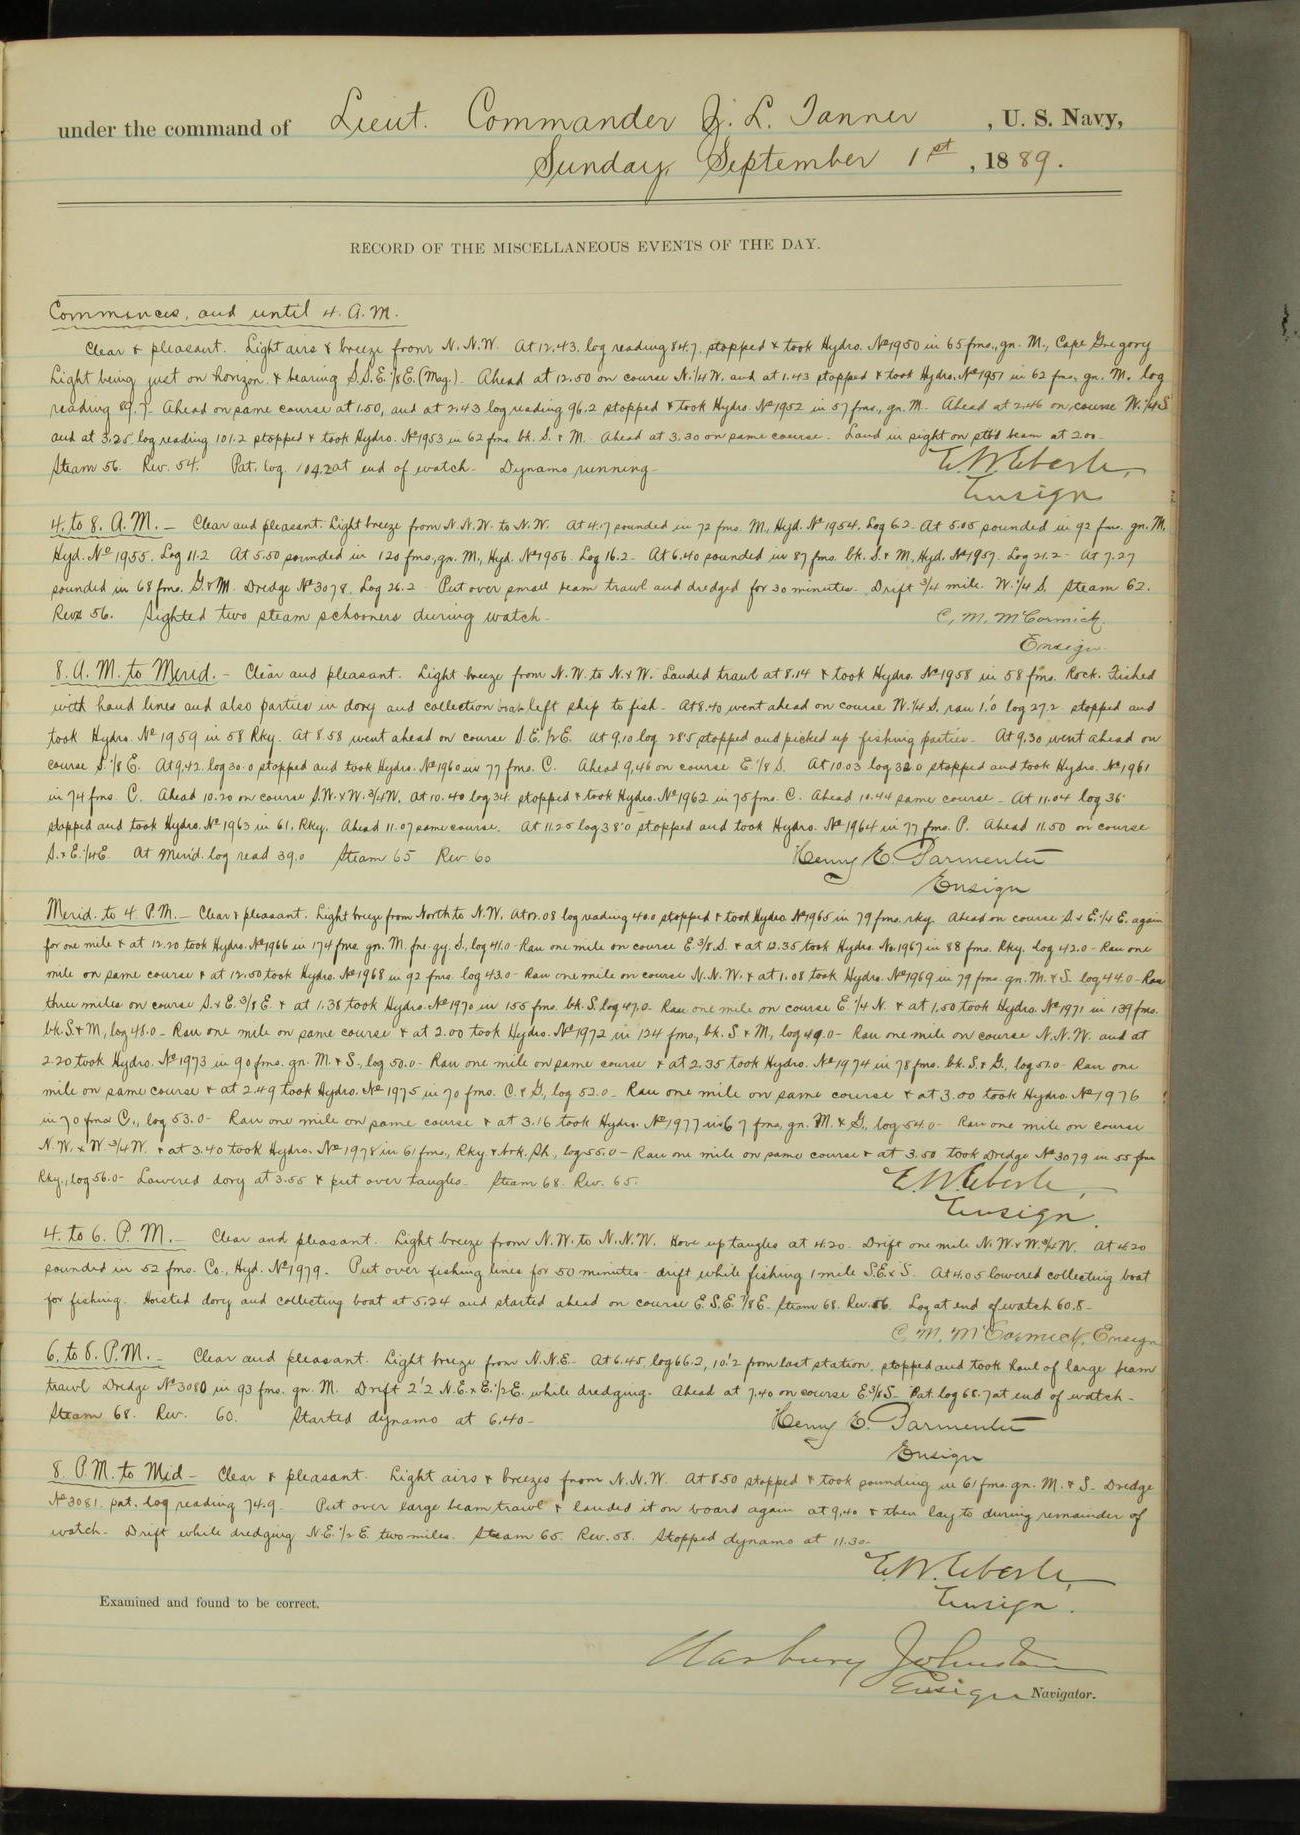 under the command of Lieut. Commander Z. L. Tanner, U. S. Navy,
Sunday, September 1st, 1889.
RECORD OF THE MISCELLANEOUS EVENTS OF THE DAY.
Commences, and until 4. A.M.
Clear & pleasant. Light airs & breeze from N.N.W. At 12.43. log reading 84.7. stopped & took Hydro. No 1950 in 65 fms., gn. M., Cape Gregory
Light being just on horizon. & bearing S.S.E. 1/8 E. (Mag.). Ahead at 12.50 on course N. 1/4 W. and at 1.43 stopped & took Hydro. No 1951 in 62 fms, gn. M. log
reading 89.7. Ahead on same course at 1.50, and at 2.43 log reading 96.2 stopped & took Hydro. No 1952 in 57 fms., gn. M. Ahead at 2.46 on course W. 1/4 S
and at 3.25 log reading 101.2 stopped & took Hydro. No 1953 in 62 fms. bk. S. & M. Ahead at 3.30 on same course. Land in sight on stb'd beam at 2.00.
Steam 56. Rev. 54. Pat. log. 104.2 at end of watch. Dynamo running.
E. W. Eberle,
Ensign
4. to 8. A.M. — Clear and pleasant. Light breeze from N.N.W. to N.W. At 4.17 sounded in 72 fms. M., Hyd. No 1954. Log 6.2. At 5.05 sounded in 92 fms. gn. M.
Hyd. No 1955. Log 11.2 At 5.50 sounded in 120 fms., gn. M., Hyd. No 1956. Log 16.2. At 6.40 sounded in 87 fms. bk. S. & M., Hyd. No 1957. Log 21.2 - At 7.27
sounded in 68 fms. G. & M. Dredge No 3078, Log 26.2 Put over small beam trawl and dredged for 30 minutes. Drift 3/4 mile. W. 1/4 S. Steam 62.
Revs 56. Sighted two steam schooners during watch.
C. M. McCormick,
Ensign.
8. A. M. to Merid. — Clear and pleasant. Light breeze from N. W. to N. x W. Landed trawl at 8.14 & took Hydro. No 1958 in 58 fms. Rock. Fished
with hand lines and also parties in dory and collection boat left ship to fish. At 8.40 went ahead on course W. 1/4 S, ran 1.'0 log 27.2 stopped and
took Hydro. No 1959 in 58 Rky. At 8.58 went ahead on course S. E. 1/2 E. At 9.10 log 28.5 stopped and picked up fishing parties. At 9.30 went ahead on
course S. 1/8 E. At 9.42. log 30.0 stopped and took Hydro. No 1960 in 77 fms. C. Ahead 9.46 on course E. 1/8 S. At 10.03 log 32.0 stopped and took Hydro. No 1961
in 74 fms. C. Ahead 10.20 on course S.W. x W. 3/4 W. At 10.40 log 34. stopped & took Hydro. No 1962 in 75 fms. C. Ahead 10.44 same course. At 11.04 log 36
stopped and took Hydro. No 1963 in 61. Rky. Ahead 11.07 same course. At 11.25 log 38.0 stopped and took Hydro. No 1964 in 77 fms. P. Ahead 11.50 on course
S. x E. 1/4 E. At Merid. log read 39.0 Steam 65 Rev. 60
Henry E. Parmenter
Ensign
Merid. to 4. P.M. — Clear & pleasant. Light breeze from North to N.W. At 12.08 log reading 40.0 stopped & took Hydro. No 1965 in 79 fms. rky. Ahead on course S. x E. 1/4 E. again
for one mile & at 12.20 took Hydro. No 1966 in 174 fms. gn. M. fne. gy. S., log 41.0 - Ran one mile on course E. 3/8 S. & at 12.35 took Hydro. No. 1967 in 88 fms. Rky. log 42.0 - Ran one
mile on same course & at 12.50 took Hydro. No 1968 in 92 fms. log 43.0 - Ran one mile on course N.N.W. & at 1.08 took Hydro. No 1969 in 79 fms. gn. M. & S. log 44.0 - Ran
three miles on course S. x E. 3/8 E. & at 1.38 took Hydro. No 1970 in 155 fms. bk. S. log 47.0. Ran one mile on course E. 1/4 N. & at 1.50 took Hydro. No 1971 in 139 fms.
bk. S. & M., log 48.0 - Ran one mile on same course & at 2.00 took Hydro. No 1972 in 124 fms., bk. S & M., log 49.0 - Ran one mile on course N.N.W. and at
2.20 took Hydro. No 1973 in 90 fms. gn. M. & S., log 50.0 - Ran one mile on same course & at 2.35 took Hydro. No 1974 in 78 fms. bk. S. & G., log 51.0 Ran one
mile on same course & at 2.49 took Hydro. No 1975 in 70 fms. C. & G., log 52.0 - Ran one mile on same course & at 3.00 took Hydro. No 1976
in 70 fms C., log 53.0 - Ran one mile on same course & at 3.16 took Hydro. No 1977 in 67 fms, gn. M. & G., log 54.0 - Ran one mile on course
N.W. x W 3/4 W. & at 3.40 took Hydro. No 1978 in 61 fms., Rky & brk. Sh., log 55.0 - Ran one mile on same course & at 3.50 took Dredge No 3079 in 55 fms
Rky., log 56.0 - Lowered dory at 3.55 & put over tangles. Steam 68. Rev. 65.
E. W. Eberle,
Ensign.
4. to 6. P. M. — Clear and pleasant. Light breeze from N.W. to N.N.W. Hove up tangles at 4.20. Drift one mile N. W. x W. 3/4 W. At 4.20
sounded in 52 fms. Co., Hyd. No 1979. Put over fishing lines for 50 minutes - drift while fishing 1 mile S.E. x S. At 4.05 lowered collecting boat
for fishing. Hoisted dory and collecting boat at 5.24 and started ahead on course E. S. E. 7/8 E. Steam 68. Rev. 56. Log at end of watch 60.8 -
C. M. McCormick, Ensign
6. to 8. P.M. — Clear and pleasant. Light breeze from N.N.E. - At 6.45, log 66.2, 10.'2 from last station, stopped and took haul of large beam
trawl Dredge No 3080 in 93 fms. gn. M. Drift 2.'2 N.E. x E. 1/2 E. while dredging. Ahead at 7.40 on course E. 3/8 S. Pat. log 68.7 at end of watch -
Steam 68. Rev. 60. Started dynamo at 6.40 -
Henry E. Parmenter
Ensign
8. P.M. to Mid — Clear & pleasant. Light airs & breezes from N.N.W. At 8.50 stopped & took sounding in 61 fms. gn. M. & S. Dredge
No 3081. pat. log reading 74.9. Put over large beam trawl & landed it on board again at 9.40 & then lay to during remainder of
watch. Drift while dredging N.E. 1/2 E. two miles. Steam 65. Rev. 58. Stopped dynamo at 11.30.
E. W. Eberle,
Ensign.
Examined and found to be correct.
Marbury Johnston
Ensign Navigator.